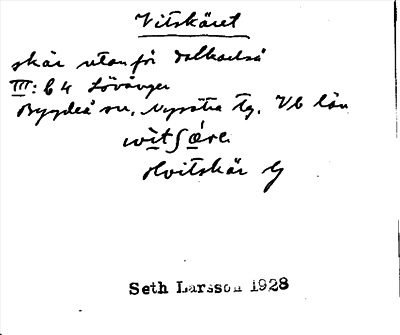 Vitskäret
skär utanför Dalkarlså
III: b 4 Lövånger
Bygdeå sn, Nysätra tg, Vb län
Hvitskär G
Seth Larsson 1928